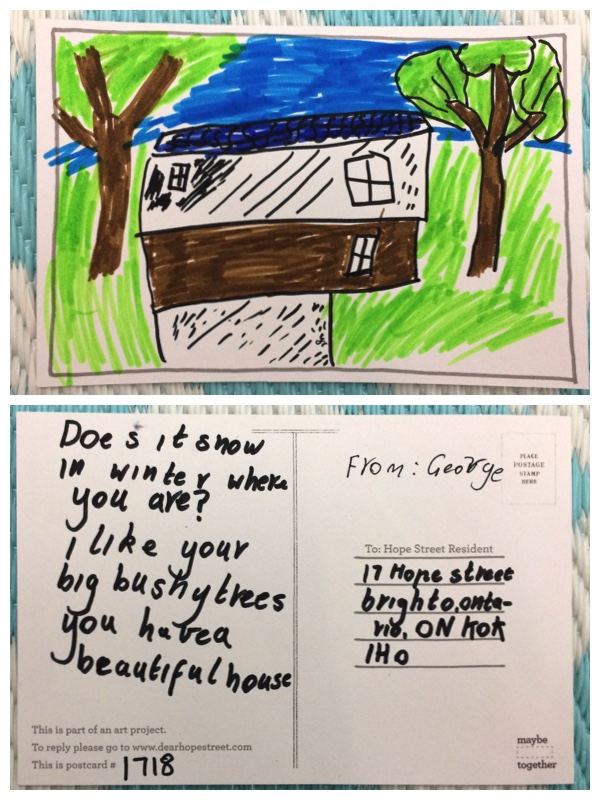 Does it snow
in winter where
you are?
i like your
big bushy trees
you have a
beautiful house
This is part of an art project.
To reply please go to www.dearhopestreet.com
This is postcard # 1718
From: George
PLACE
POSTAGE
STAMP
HERE
To: Hope Street Resident
17 Hope street
brighto,onta-
rio, ON KOK
1H0
maybe
together